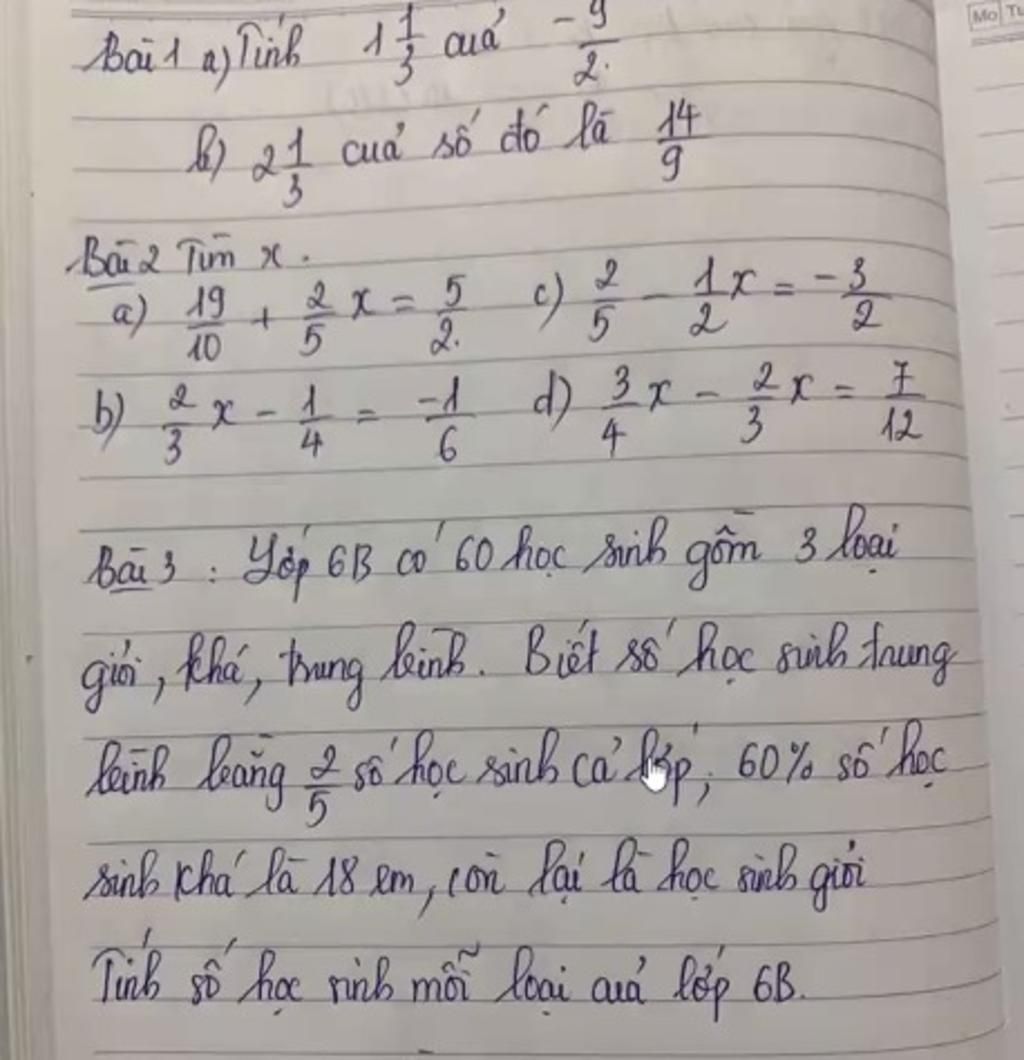 Bài 1 a) Tính 1 1/3 của -9/2.
b) 2 1/3 của số đó là 14/9
Bài 2 Tìm x.
a) 19/10 + 2/5 x = 5/2. c) 2/5 - 1/2 x = -3/2
b) 2/3 x - 1/4 = -1/6 d) 3/4 x - 2/3 x = 7/12
Bài 3 : Lớp 6B có 60 học sinh gồm 3 loại
giỏi, khá, trung bình. Biết số học sinh trung
bình bằng 2/5 số học sinh cả lớp, 60% số học
sinh khá là 18 em, còn lại là học sinh giỏi
Tính số học sinh mỗi loại của lớp 6B.
Mo Tu